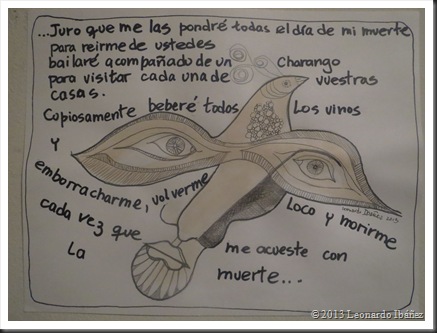 ...Juro que me las pondré todas el día de mi muerte
para reirme de ustedes
bailaré acompañado de un Charango
para visitar cada una de vuestras
casas.
Copiosamente beberé todos Los vinos
y
emborracharme, volverme Loco y morirme
cada vez que
La me acueste con
muerte...
Leonardo Ibáñez 2013
© 2013 Leonardo Ibáñez